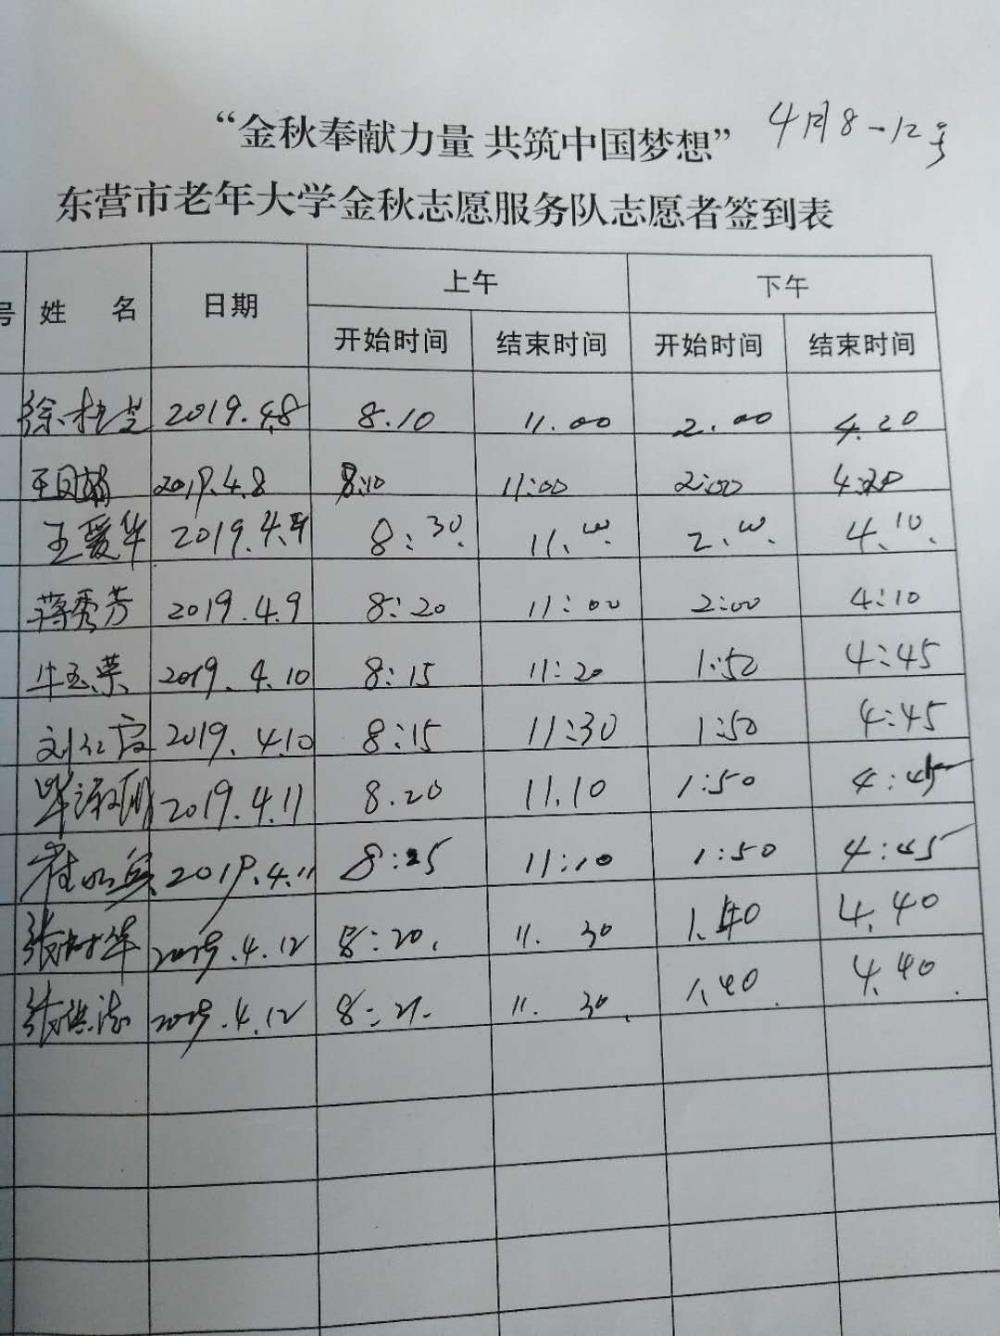 4月8-12号
“金秋奉献力量 共筑中国梦想”
东营市老年大学金秋志愿服务队志愿者签到表
号 姓 名 日期 上午 下午
开始时间 结束时间 开始时间 结束时间
徐桂芝 2019.4.8 8.10 11.00 2.00 4.20
王 2019.4.8 8:10 11:00 2:00 4:20
王爱华 2019.4.9 8:30. 11.00. 2.00. 4.10.
蒋秀芳 2019.4.9 8:20 11:00 2:00 4:10
牛玉荣 2019.4.10 8:15 11:20 1:50 4:45
刘红霞 2019.4.10 8:15 11:30 1:50 4:45
2019.4.11 8.20 11.10 1:50 4:45
崔 2019.4.11 8:25 11:10 1:50 4:45
张树华 2019.4.12 8:20. 11.30 1.40 4.40
张洪 2019.4.12 11.30. 1.40. 4.40.